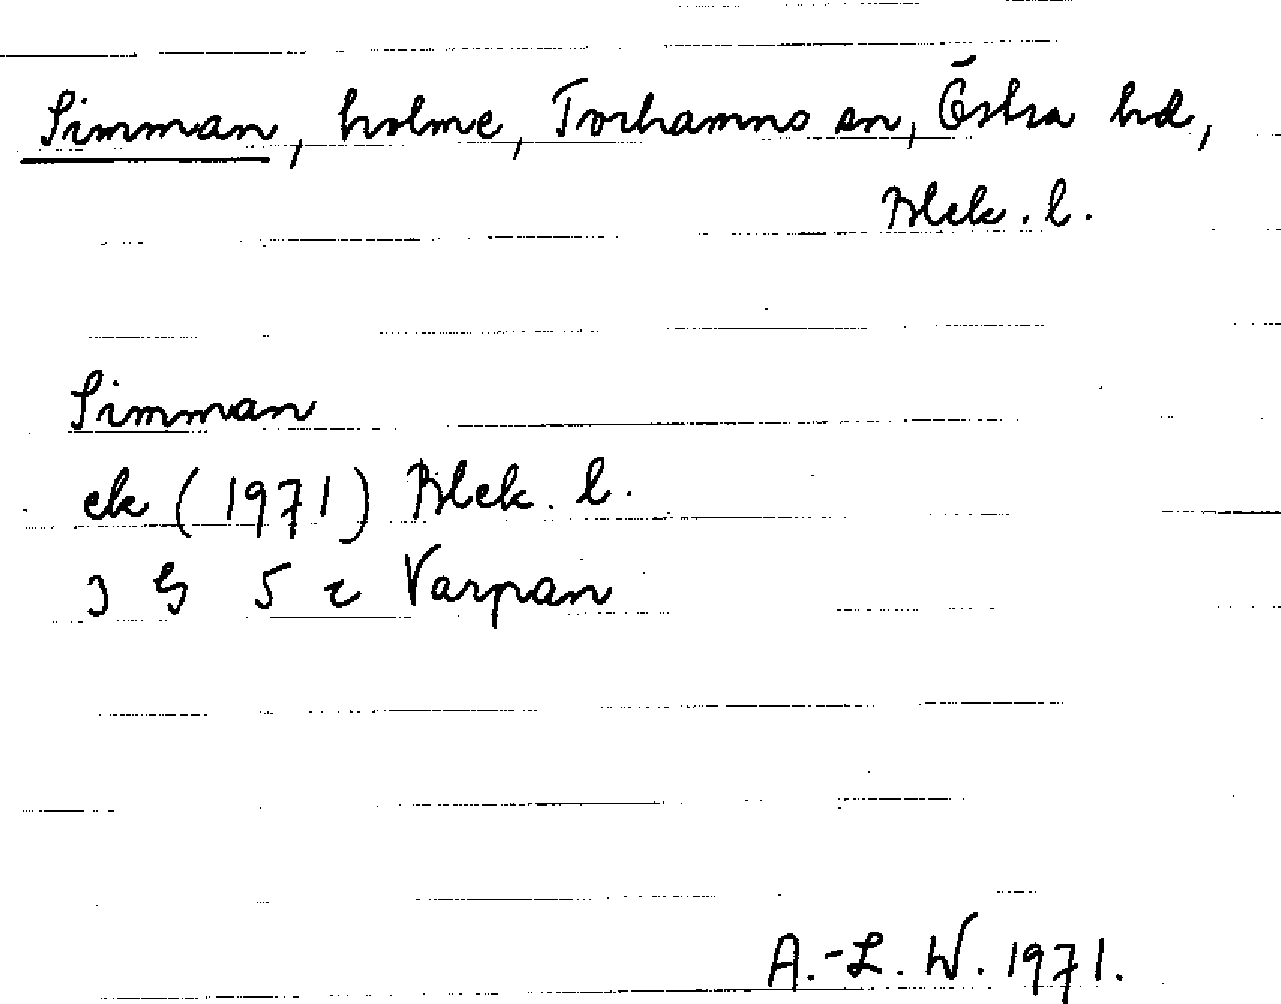 Simman, holme, Torhamns sn, Östra hd,
Blek. l.
Simman
ek (1971) Blek. l.
3 G 5 c Varpan
A.-L. W. 1971.